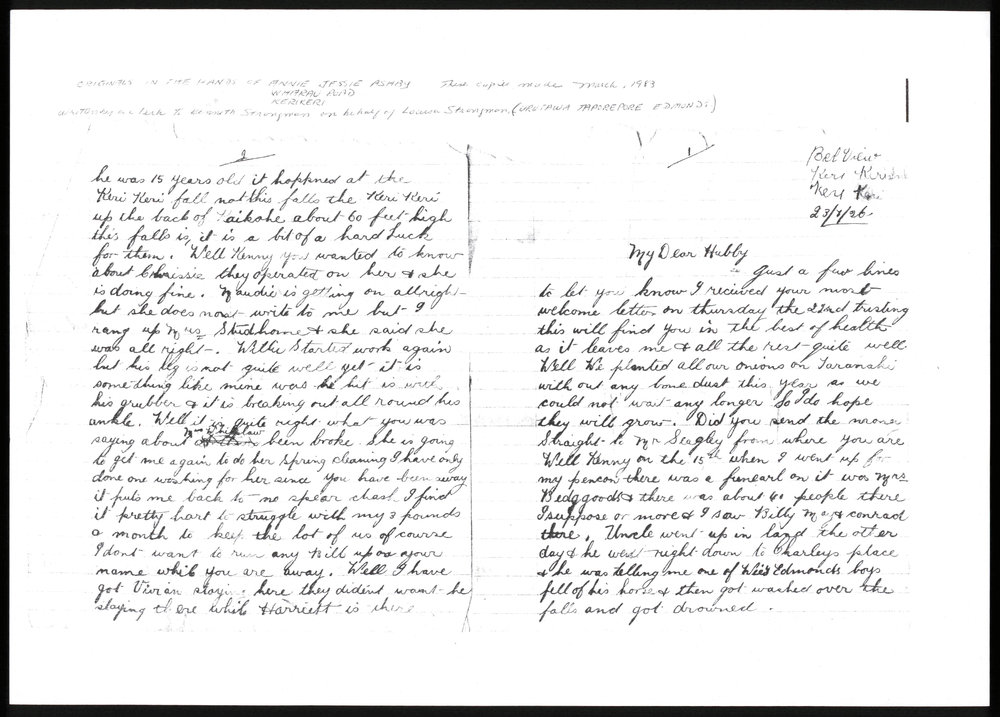 ORIGINALS IN THE HANDS OF ANNIE JESSIE ASHBY These copies made March, 1983
WHARAU ROAD
KERIKERI
Kenneth Strongman on behalf of Louisa Strongman. (URUTAWA TAPOREPORE EDMONDS)
1
Bel View
Keri Keri
Keri Keri
23/7/26.
My Dear Hubby
Just a few lines
to let you know I recieved your most
welcome letter on thursday the 22nd trusting
this will find you in the best of health
as it leaves me & all the rest quite well
Well We planted all our onions on Taranaki
with out any bone dust this year as we
could not wait any longer So I do hope
they will grow. Did you send the money
Straight to Mr Seagley from where you are
Well Kenny on the 15th when I went up for
my pencon there was a funearl on it was Mrs
Beaggoods & there was about 40 people there
I suppose or more & I saw Billy May & conrad
there. Uncle went up in land the other
day & he went right down to Charleys place
& he was telling me one of Wii's Edmonds boys
fell of his horse & then got washed over the
falls and got drowned.
2
he was 15 years old it happned at the
Keri Keri fall not this falls the Keri Keri
up the back of Kaikohe about 60 feet high
this falls is, it is a bit of a hard Luck
for them. Well Kenny you wanted to know
about Chrissie they operated on her & she
is doing fine. Maudie is getting on allright
but she does not write to me but I
rang up Mrs Studhome & she said she
was all right. Willie Started work again
but his leg is not quite well yet it is
something like mine was he hit is with
his grubber & it is breaking out all round his
ankle. Well it is quite right what you was
saying about Mrs Whitelaw been broke. She is going
to get me again to do her Spring cleaning I have only
done one washing for her since you have been away
it puts me back to no spear chash I find
it pretty hart to struggle with my 3 pounds
a month to keep the lot of us of course
I dont want to run any Bill up on your
name while you are away. Well I have
got Vivian staying here they dident want he
staying there while Harriett is there